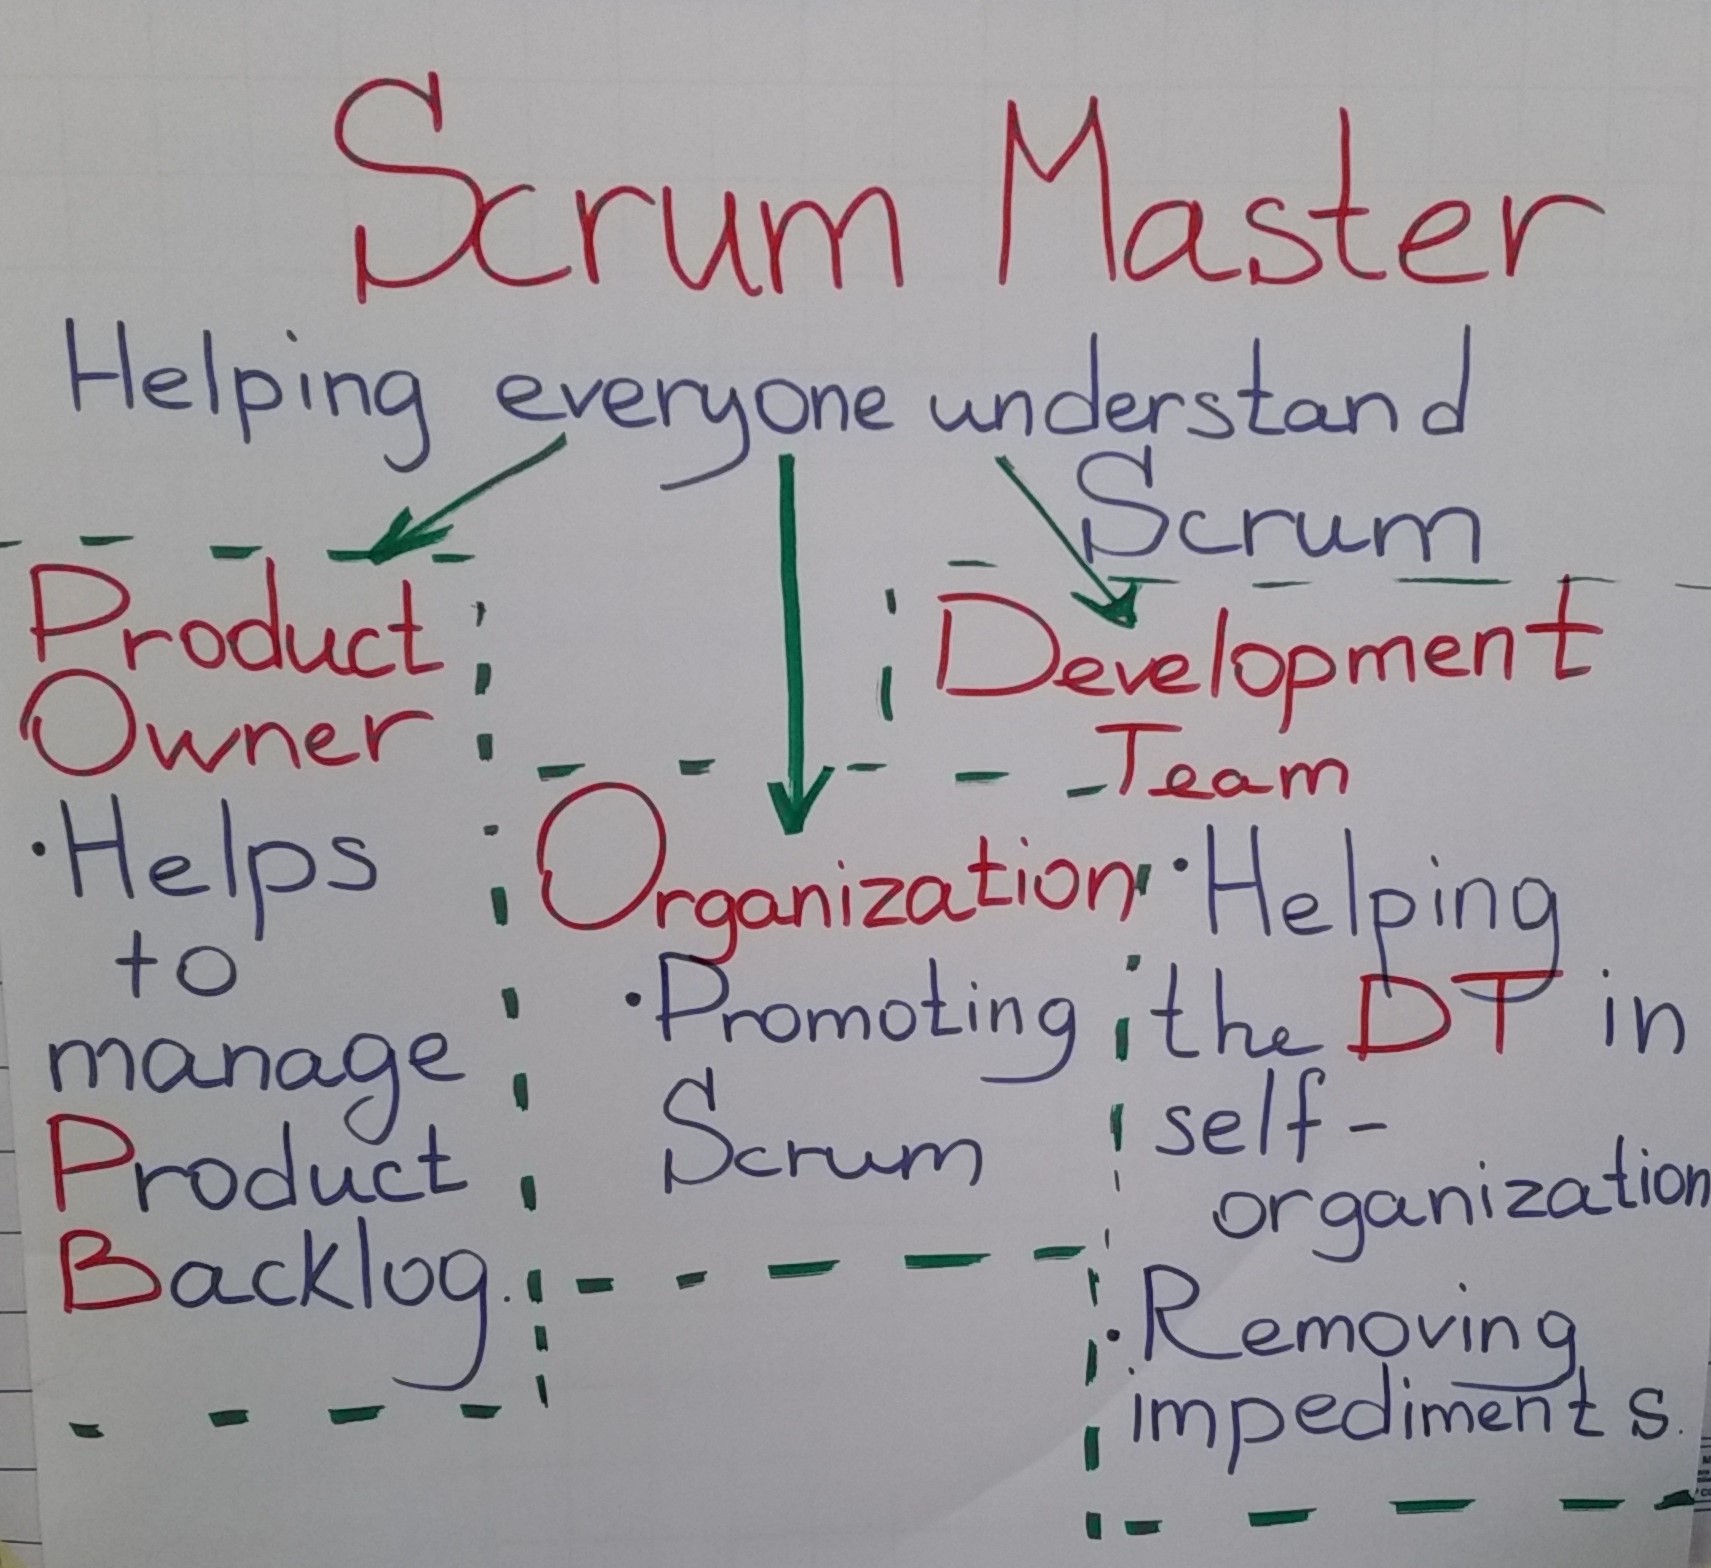 Scrum Master
Helping everyone understand
Scrum
Product
Owner
·Helps
to
manage
Product
Backlog.
Organization
·Promoting
Scrum
Development
Team
·Helping
the DT in
self-
organization
·Removing
impediments.